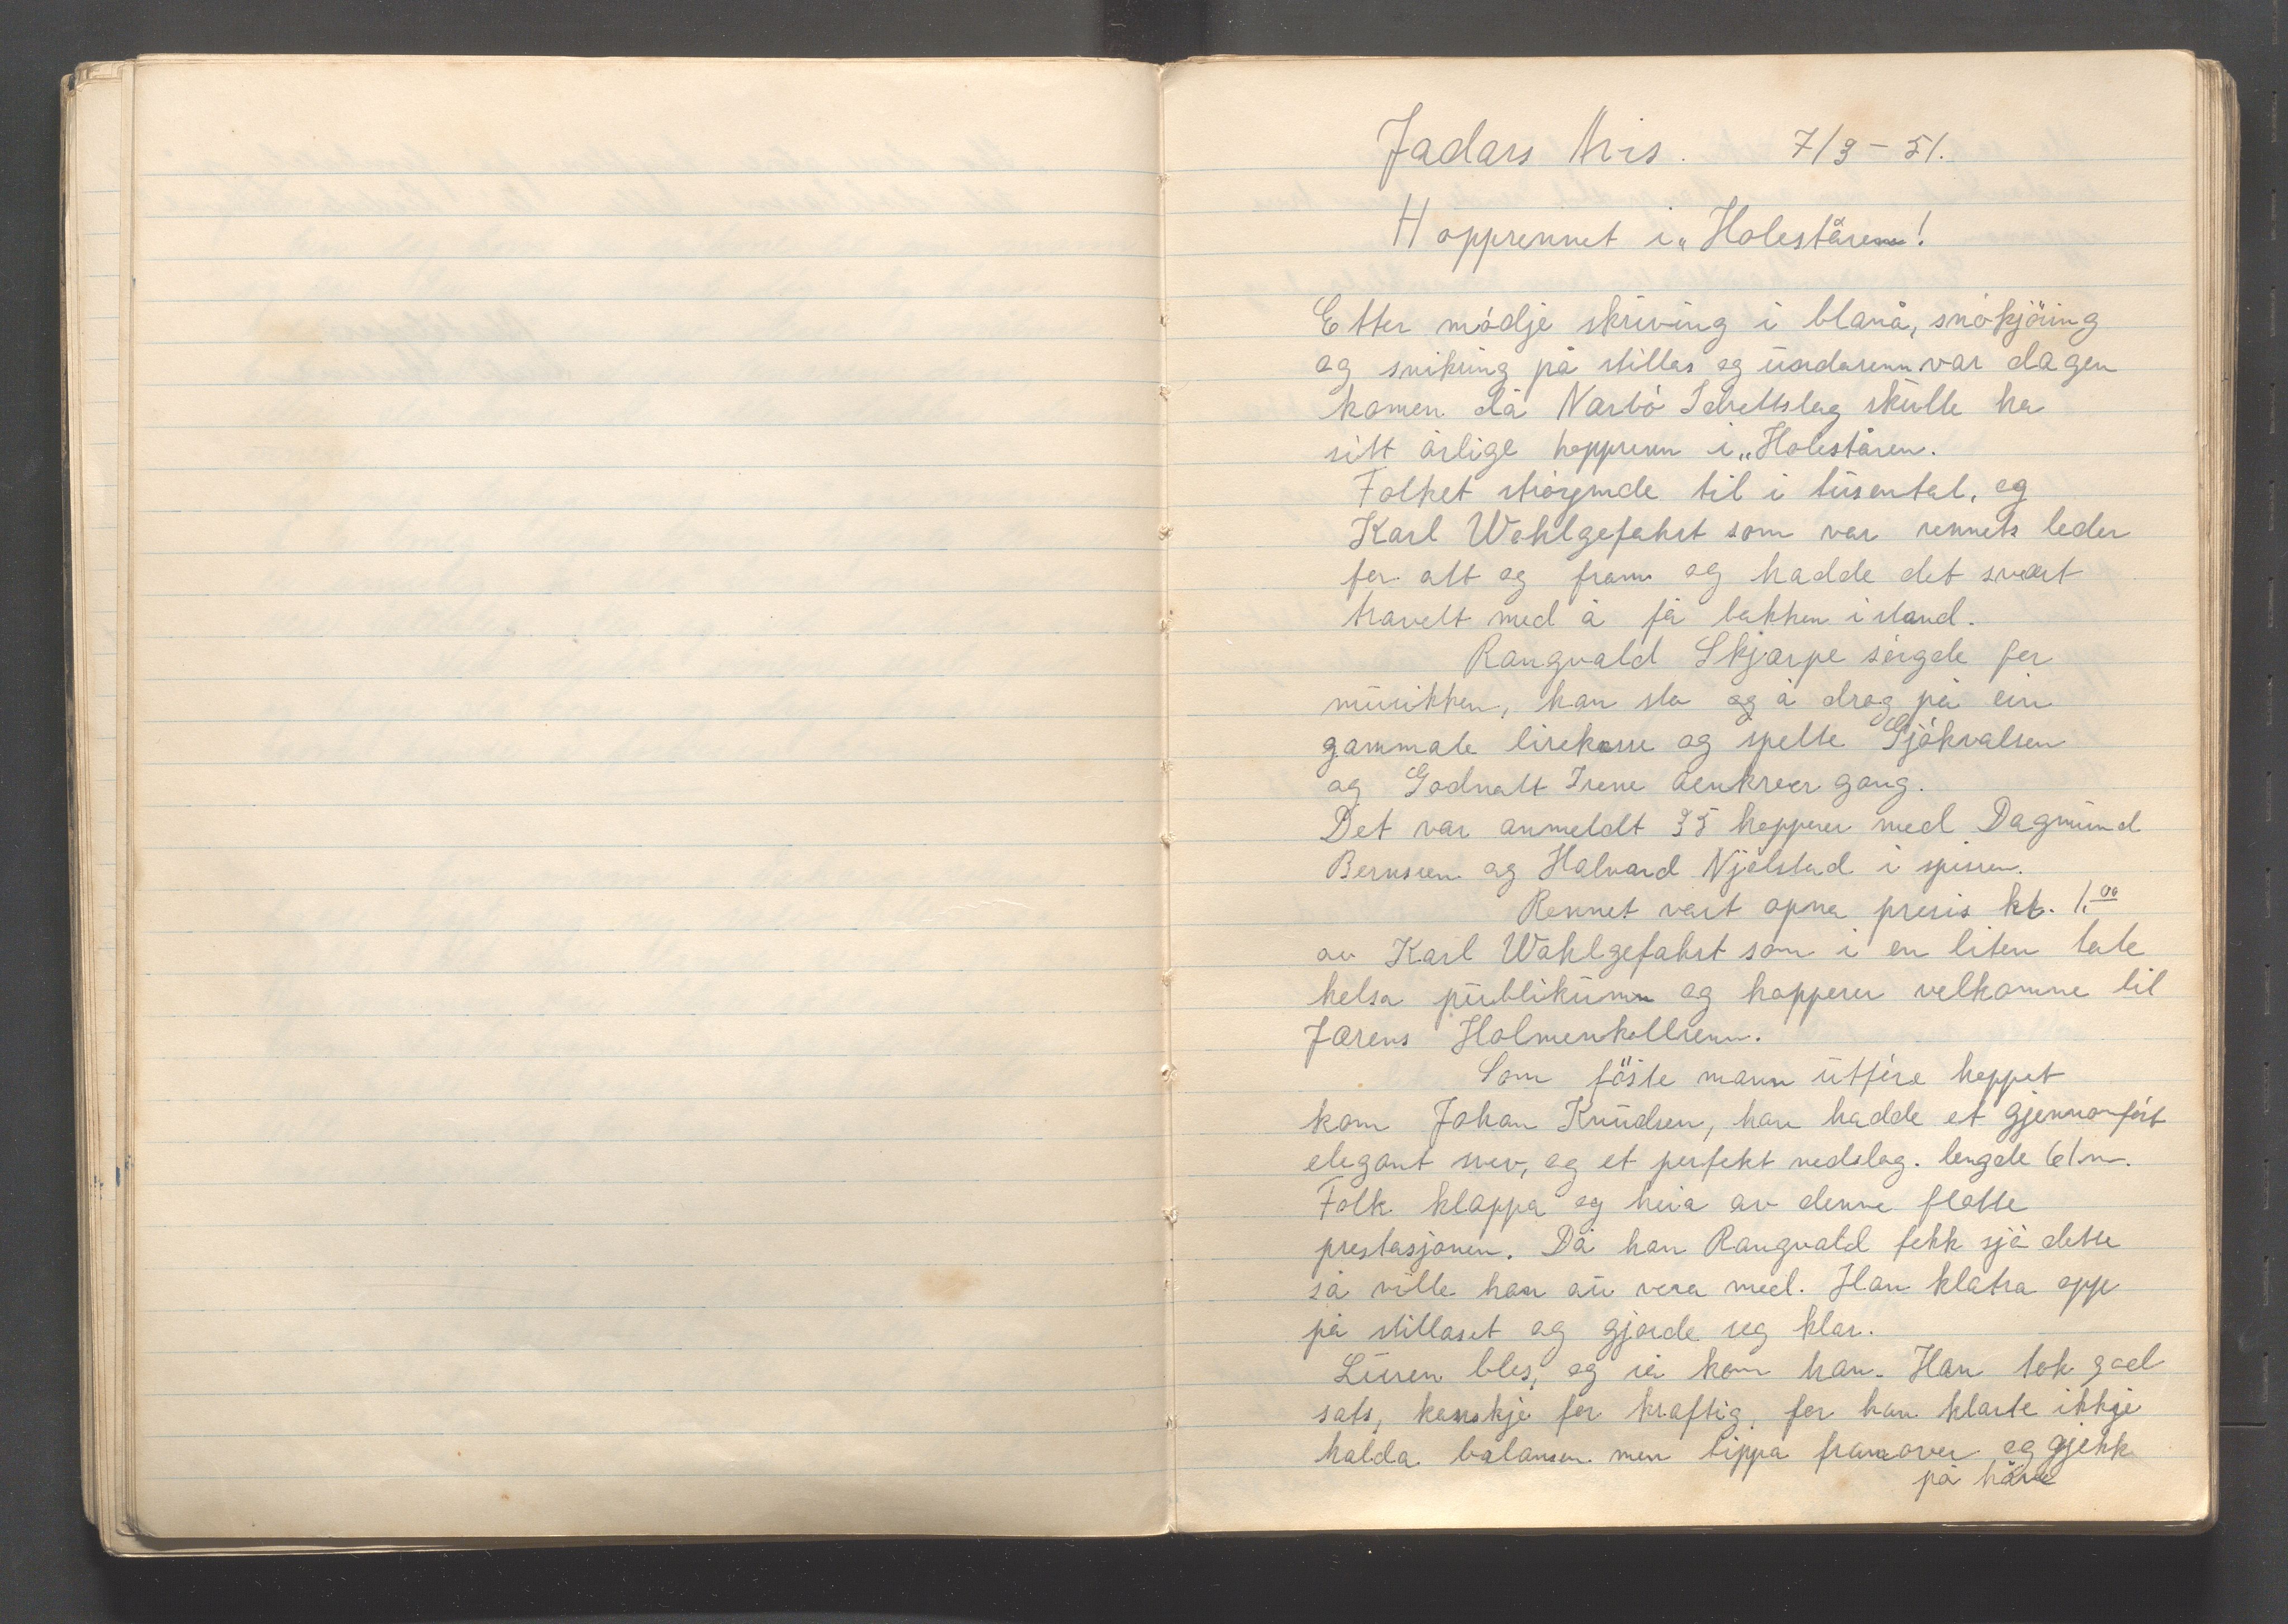 Jadars Avis. 7/3-51.
Hopprennet i „Holeståren!
Etter mödje skriving i blanå, snökjöring
og snikring på stillas og undarenn var dagen
komen då Narbö Idrettslag skulle ha
sitt årlige hopprenn i „Holeståren.
Folket strøymde til i tusental, og
Karl Wohlgefahrt som var rennets leder
for att og fram og hadde det svært
travelt med å få bakken i stand.
Rangvald Skjærpe sörgde for
musikken, han sto og å drog på ein
gammale lirekasse og spelte Sjökvalsen
og Godnatt Irene aenkreer gong.
Det var anmeldt 35 hopperer med Dagmund
Bernsen og Halvard Njølstad i spissen.
Rennet vart opna presis kl. 1.00
av Karl Wohlgefahrt som i en liten tale
helsa publikumm og hopperer velkomne til
Jærens Holmenkollrenn.
Som föste mann utföre hoppet
kom Johan Knudsen, han hadde et gjennomfört
elegant svev, og et perfekt nedslag. lengde 61m.
Folk klappa og heia av denne flotte
prestasjonen. Då han Rangvald fekk sjå dette
så ville han au vera med. Han klatra opp
på stillaset og gjorde seg klar.
Luren bles, og så kom han. Han tok god
sats, kanskje for kraftig, for han klarte ikkje
halda balansen men tippa framover og gjekk
på håve